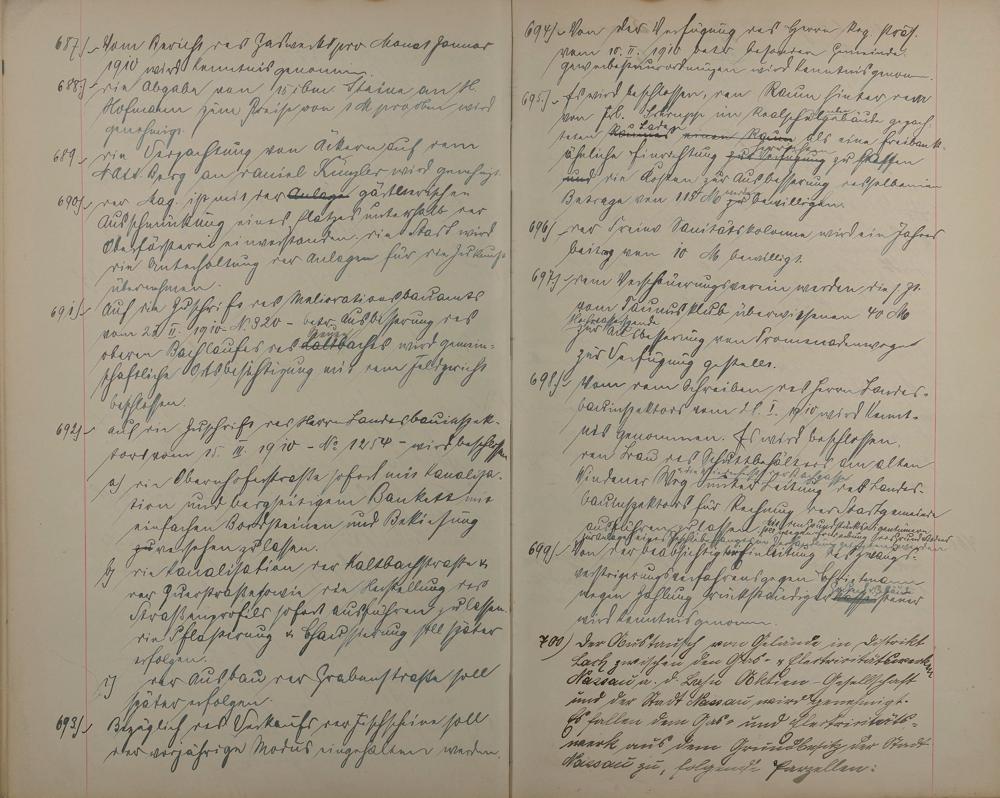 687)- Vom Bericht des Gaswerks pro Monat Januar
1910 wird Kenntnis genommen.
688)- die Abgabe von 15 cbm Steine an H.
Hofmann zum Preise von 1 M pro cbm wird
genehmigt.
689.- die Verpachtung von Äckern auf dem
berg an Daniel Künzler wird genehmigt.
690)- der Mag. ist mit der Anlage gärtnerischen
Ausschmückung eines Platzes unterhalb der
Oberförsterei einverstanden. die Stadt wird
die Unterhaltung der Anlagen für die Zukunft
übernehmen.
691)- Auf die Zuschrift des Meliorationsbauamts
vom II. 1910 - No 820 - betr. Ausbesserung des
oberen Bachlaufes des Kaltbaches wird gemein-
schaftliche Ortsbesichtigung mit dem Feldgericht
beschlossen.
692)- auf die Zuschrift des Herrn Landesbauinspek-
tors vom 15. II. 1910 - No 1254 - wird beschlossen
a) die Obernhoferstraße sofort mit Kanalisa-
tion und bergseitigem Bankett mit
einfachen Bordsteinen und Bekiesung
zu versehen zu lassen.
b) die Kanalisation der Kaltbachstraße &
der Querstraße sowie die Herstellung des
Straßenprofils sofort ausführen zu lassen.
die Pflasterung & Chaussierung soll später
erfolgen.
c) der Ausbau der Grabenstraße soll
später erfolgen.
693)- Bezüglich des Verkaufs der Fischscheine soll
der vorjährige Modus eingehalten werden.
694)- Von der Verfügung des Herrn Reg. Präs.
vom 15. II. 1910 betr. besondere Gemeinde-
gewerbesteuerordnungen wird Kenntnis genom.
695)- Es wird beschlossen, den Raum hinter dem
von Frl. im Realschulgebäude gepach-
teten Laden als eine Freibank-
ähnliche Einrichtung zur Verfügung zu schaffen
und die Kosten zur Ausbesserung desselben im
Betrage von 115 M zu bewilligen.
696)- der Freiw. Sanitätskolonne wird ein Jahres
beitrag von 10 M bewilligt.
697)- dem Verschönerungsverein werden die z. Zt.
vom Taunusklub überwiesenen 40 M
zur Ausbesserung von Promenadenwegen
zur Verfügung gestellt.
698)- Von dem Schreiben des Herrn Landes-
bauinspektors vom I. 1910 wird Kennt-
nis genommen. Es wird beschlossen,
den Bau des Schuttbehälters am alten
Windener Weg unter Leitung des Landes-
bauinspektors für Rechnung der Stadtgemeinde
ausführen zu lassen
699)- Von der beabsichtigten Einleitung des Zwangs-
versteigerungsverfahrens gegen
wegen Zahlung rückständiger Steuer
wird Kenntnis genommen.
700) Der Austausch von Gelände im Distrikt
Lach zwischen den Gas- & Elektricitätswerken
Nassau a. d. Lahn Aktien-Gesellschaft
und der Stadt Nassau wird genehmigt.
Es fallen dem Gas- und Elektricitäts-
werk aus dem Grundbesitz der Stadt
Nassau zu, folgende Parzellen: